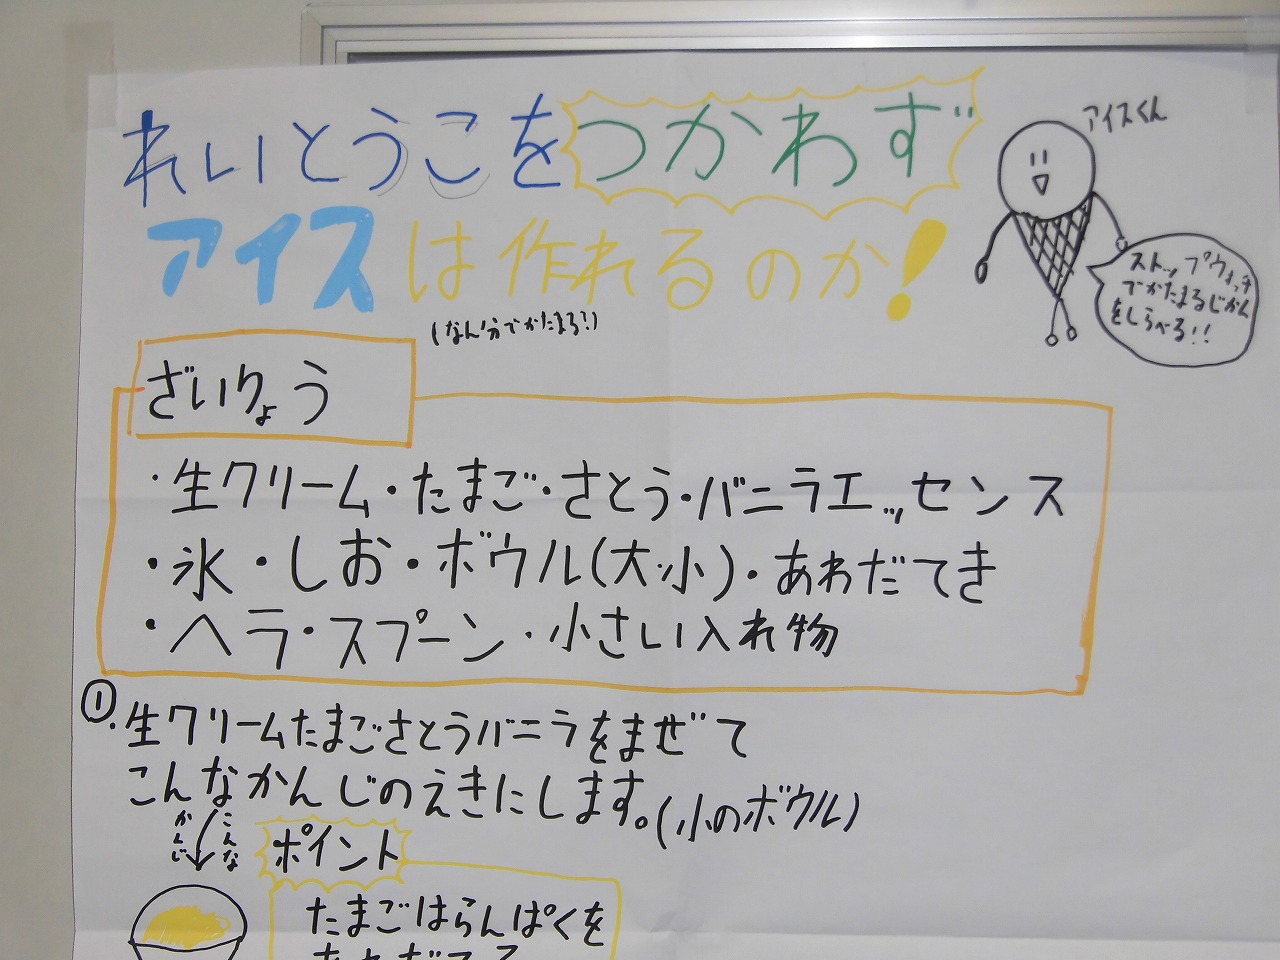 れいとうこをつかわず
アイスは作れるのか!
(なん分でかたまる?)
アイスくん
ストップウォッチ
でかたまるじかん
をしらべる!!
ざいりょう
・生クリーム・たまご・さとう・バニラエッセンス
・氷・しお・ボウル(大・小)・あわだてき
・ヘラ・スプーン・小さい入れ物
①・生クリームたまごさとうバニラをまぜて
こんなかんじのえきにします。(小のボウル)
こんな
かんじ
ポイント
たまごはらんぱくを